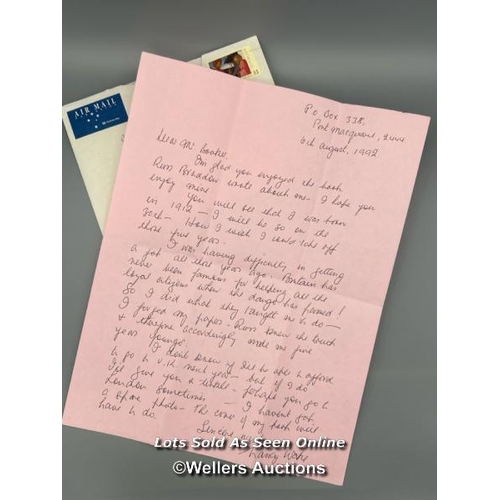 AIR MAIL
P.O. Box 338,
Port Macquarie,
6th August, 1992
Dear Mr
I'm glad you enjoyed the book
Russ Braddon wrote about me. I hope you
enjoy mine.
You will see that I was born
in 1912 – I will be 80 on the
30th – How I wish I could take off
those five years.
I was having difficulty in getting
a job all those years ago. Britain has
never been famous for helping all the
loyal citizens when the danger has passed!
So I did what they taught me to do –
I forged my papers. Russ knew the
& therefore accordingly made me five
years younger.
I don't know if I'll be able to afford
to go to U.K. next year – but if I do
I'll give you a tinkle – perhaps you go to
London sometimes – I haven't got
a spare photo – the cover of my book will
have to do.
Sincerely
Nancy Wake
Lots Sold As Seen Online
©Wellers Auctions